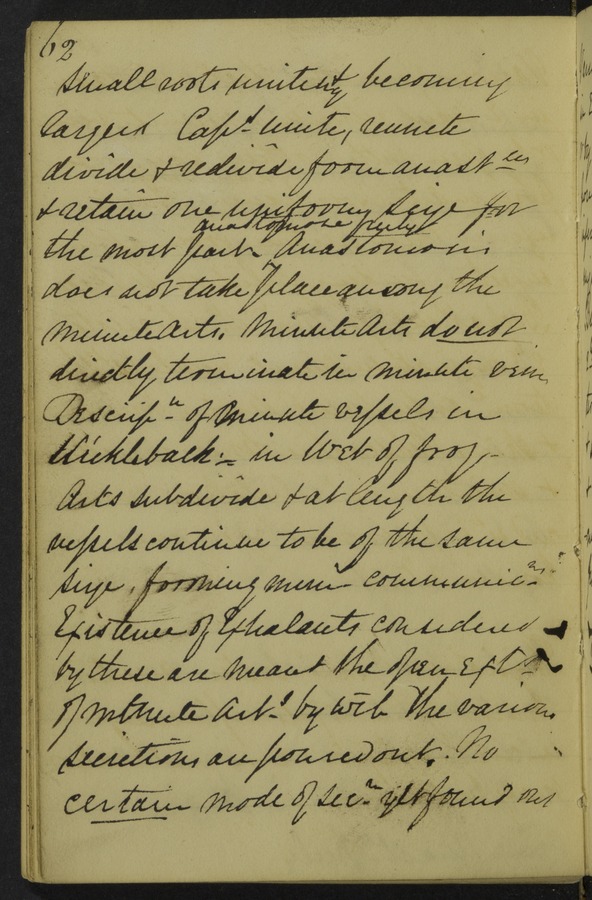 62
small roots uniting & becoming
larger. Caps unite, reunite
divide & redivide form anast.ces
& retain one uniform size for
anastomose freely
the most part. Anastomosis
does not take place among the
minute Arts. Minute Arts do not
directly terminate in minute veins
Descripn of Minute vessels in
Stickleback:- in Web of frog-
Arts subdivide & at length the
vessels continue to be of the same
size, forming communicns
Existence of Exhalants considered
by these are meant the open Ext
of minute Arts by wch the various
secretions are poured out. No
certain mode of secn yet found out